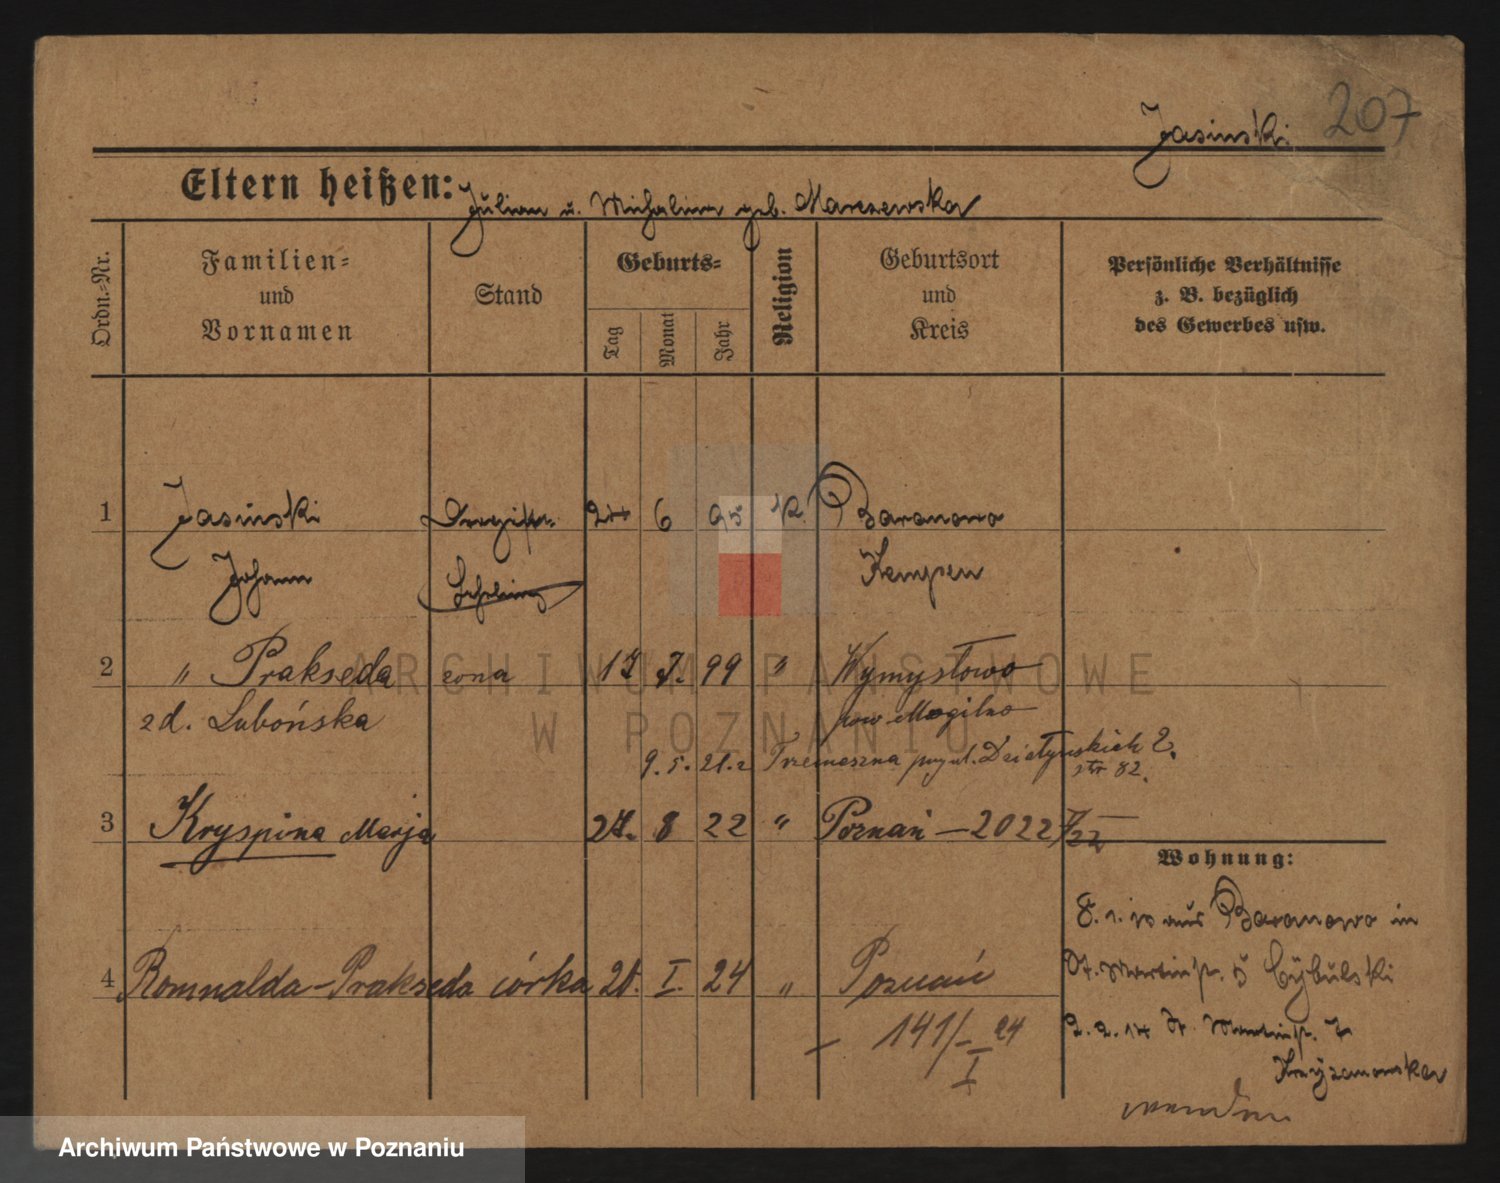 207
Jasinski
Eltern heißen: Julian u. Michalina geb. Marszewska
Ordn.-Nr.
Familien- und Vornamen
Stand
Geburts-
Tag
Monat
Jahr
Religion
Geburtsort und Kreis
Persönliche Verhältnisse
z. B. bezüglich
des Gewerbes usw.
1 Jasinski 24 6 95 K. Baranowo
Johann Kempen
2 " Prakseda żona 17 7. 99 " Wymysłowo
zd. Lubońska pow Mogilno
9. 5. 21. z Trzemeszna ul. Działyńskich 2.
str 82.
3 Kryspina Marja 27. 8 22 " Poznań — 2022
Wohnung:
aus Baranowo in
St. Martinstr. Cybulski
4 Romualda-Prakseda córka 20. I. 24 " Poznań
2. 2. 14 St. Martinstr.
141/I 24
Krzyzanowska
wenden
ARCHIWUM PAŃSTWOWE
W POZNANIU
Archiwum Państwowe w Poznaniu